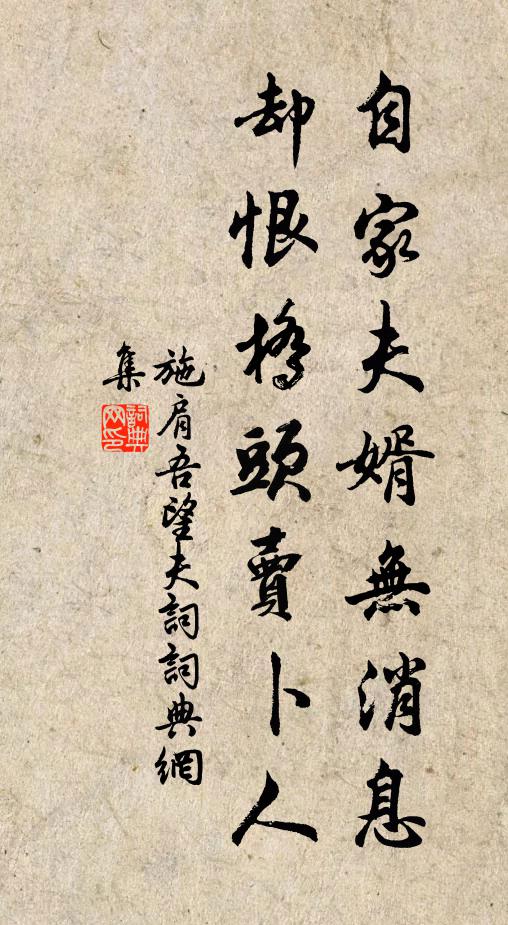 自家夫婿無消息
却恨橋頭賣卜人
施肩吾望夫詞詞典網
集
詞典網印